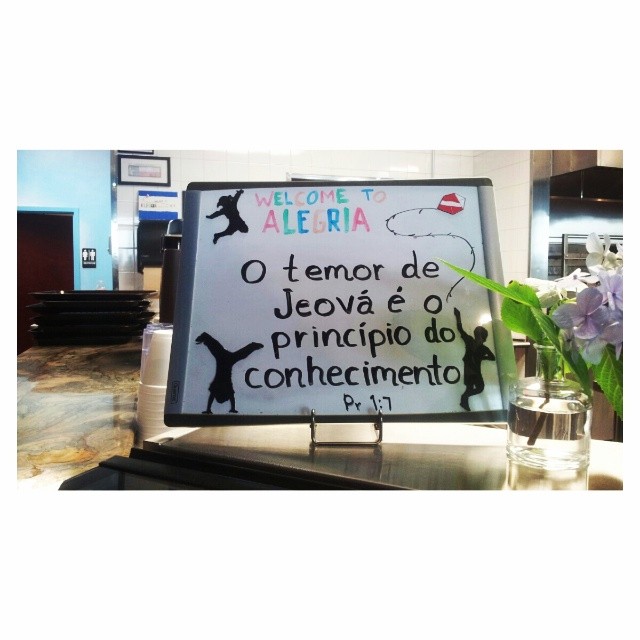 WELCOME TO
ALEGRIA
O temor de
Jeová é o
princípio do
conhecimento
Pr 1:7